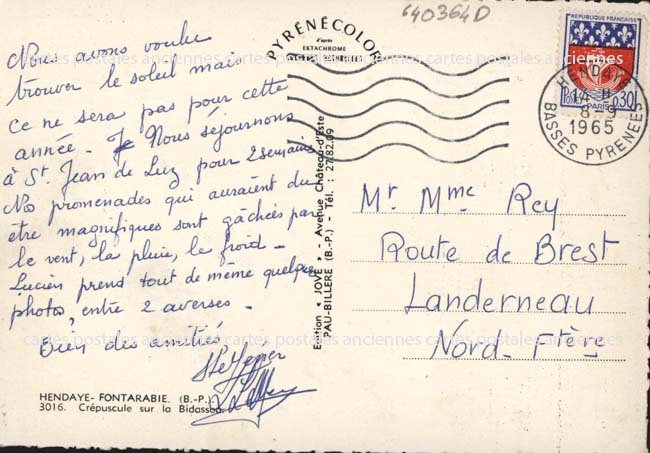 640364D
Nous avons voulu
trouver le soleil mais
ce ne sera pas pour cette
année. Je Nous séjournons
à St Jean de Luz pour 2 semaines
Nos promenades qui auraient du
être magnifiques sont gâchées par
le vent, la pluie, le froid -
Lucien prend tout de même quelques
photos, entre 2 averses -
Bien des amitiés,
HENDAYE- FONTARABIE. (B.-P.)
3016. Crépuscule sur la Bidassoa.
PYRÉNÉCOLOR
d'après
EKTACHROME
Edition « JOVÉ » - Avenue Château-d'Este
PAU-BILLÈRE (B.-P.) - Tél. : 27.82.09
REPUBLIQUE FRANÇAISE
Postes
PARIS
0,30
HENDAYE
14 H
8-9
1965
BASSES PYRENEES
Mr Mme Rey
Route de Brest
Landerneau
Nord-Ftès
cartes postales anciennes cartes postales anciennes
cartes postales anciennes cartes postales anciennes